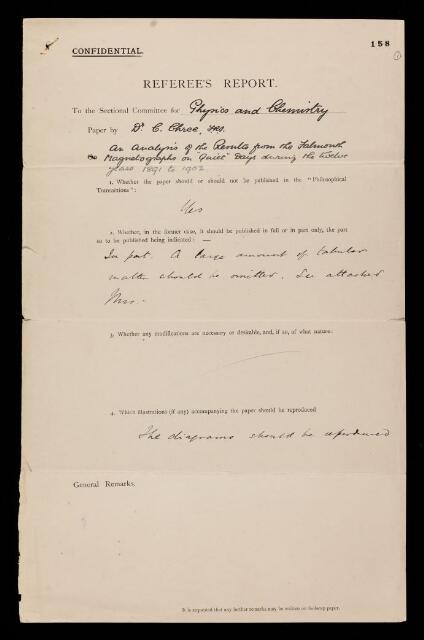 CONFIDENTIAL.
158
1
REFEREE'S REPORT.
To the Sectional Committee for Physics and Chemistry
Paper by Dr. C. Chree, FRS.
An Analysis of the Results from the Falmouth
on Magnetographs on "Quiet" Days during the twelve
years 1891 to 1902
1. Whether the paper should or should not be published in the "Philosophical
Transactions":
Yes
2. Whether, in the former case, it should be published in full or in part only, the part
so to be published being indicated: —
In part. A large amount of tabular
matter should be omitted. See attached
3. Whether any modifications are necessary or desirable, and, if so, of what nature:
4. Which illustrations (if any) accompanying the paper should be reproduced
The diagrams should be reproduced
General Remarks.
It is requested that any further remarks may be written on foolscap paper.